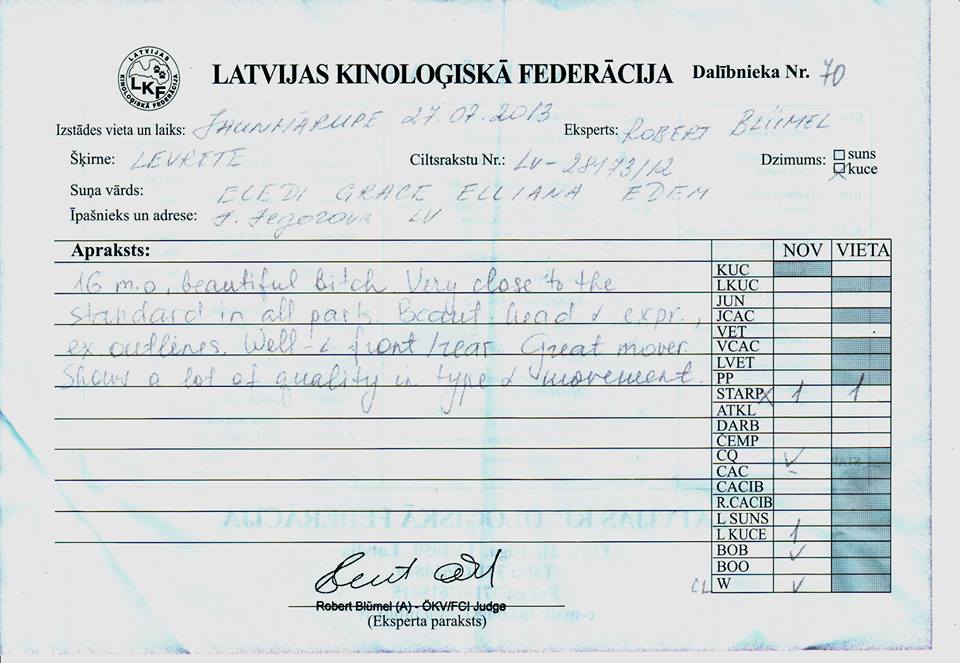 LATVIJAS KINOLOĢISKĀ FEDERĀCIJA
LKF
LATVIJAS KINOLOĢISKĀ FEDERĀCIJA Dalībnieka Nr. 70
Izstādes vieta un laiks: JAUNMĀRUPE 27.07.2013 Eksperts: ROBERT BLÜMEL
Šķirne: LEVRETE Ciltsrakstu Nr.: LV-28173/12 Dzimums: suns
kuce
Suņa vārds: ELEDI GRACE ELLIANA EDEM
Īpašnieks un adrese: J. Jegorova LV
Apraksts: NOV VIETA
16 m.o, beautiful bitch. Very close to the
standard in all parts. Beaut. head & expr.,
ex outlines. Well front/rear. Great mover.
Shows a lot of quality in type & movement.
KUC
LKUC
JUN
JCAC
VET
VCAC
LVET
PP
STARP x 1 1
ATKL
DARB
ČEMP
CQ ✓
CAC
CACIB
R.CACIB
L SUNS
L KUCE 1
BOB ✓
BOO
CL W ✓
Robert Blümel (A) - ÖKV/FCI Judge
(Eksperta paraksts)